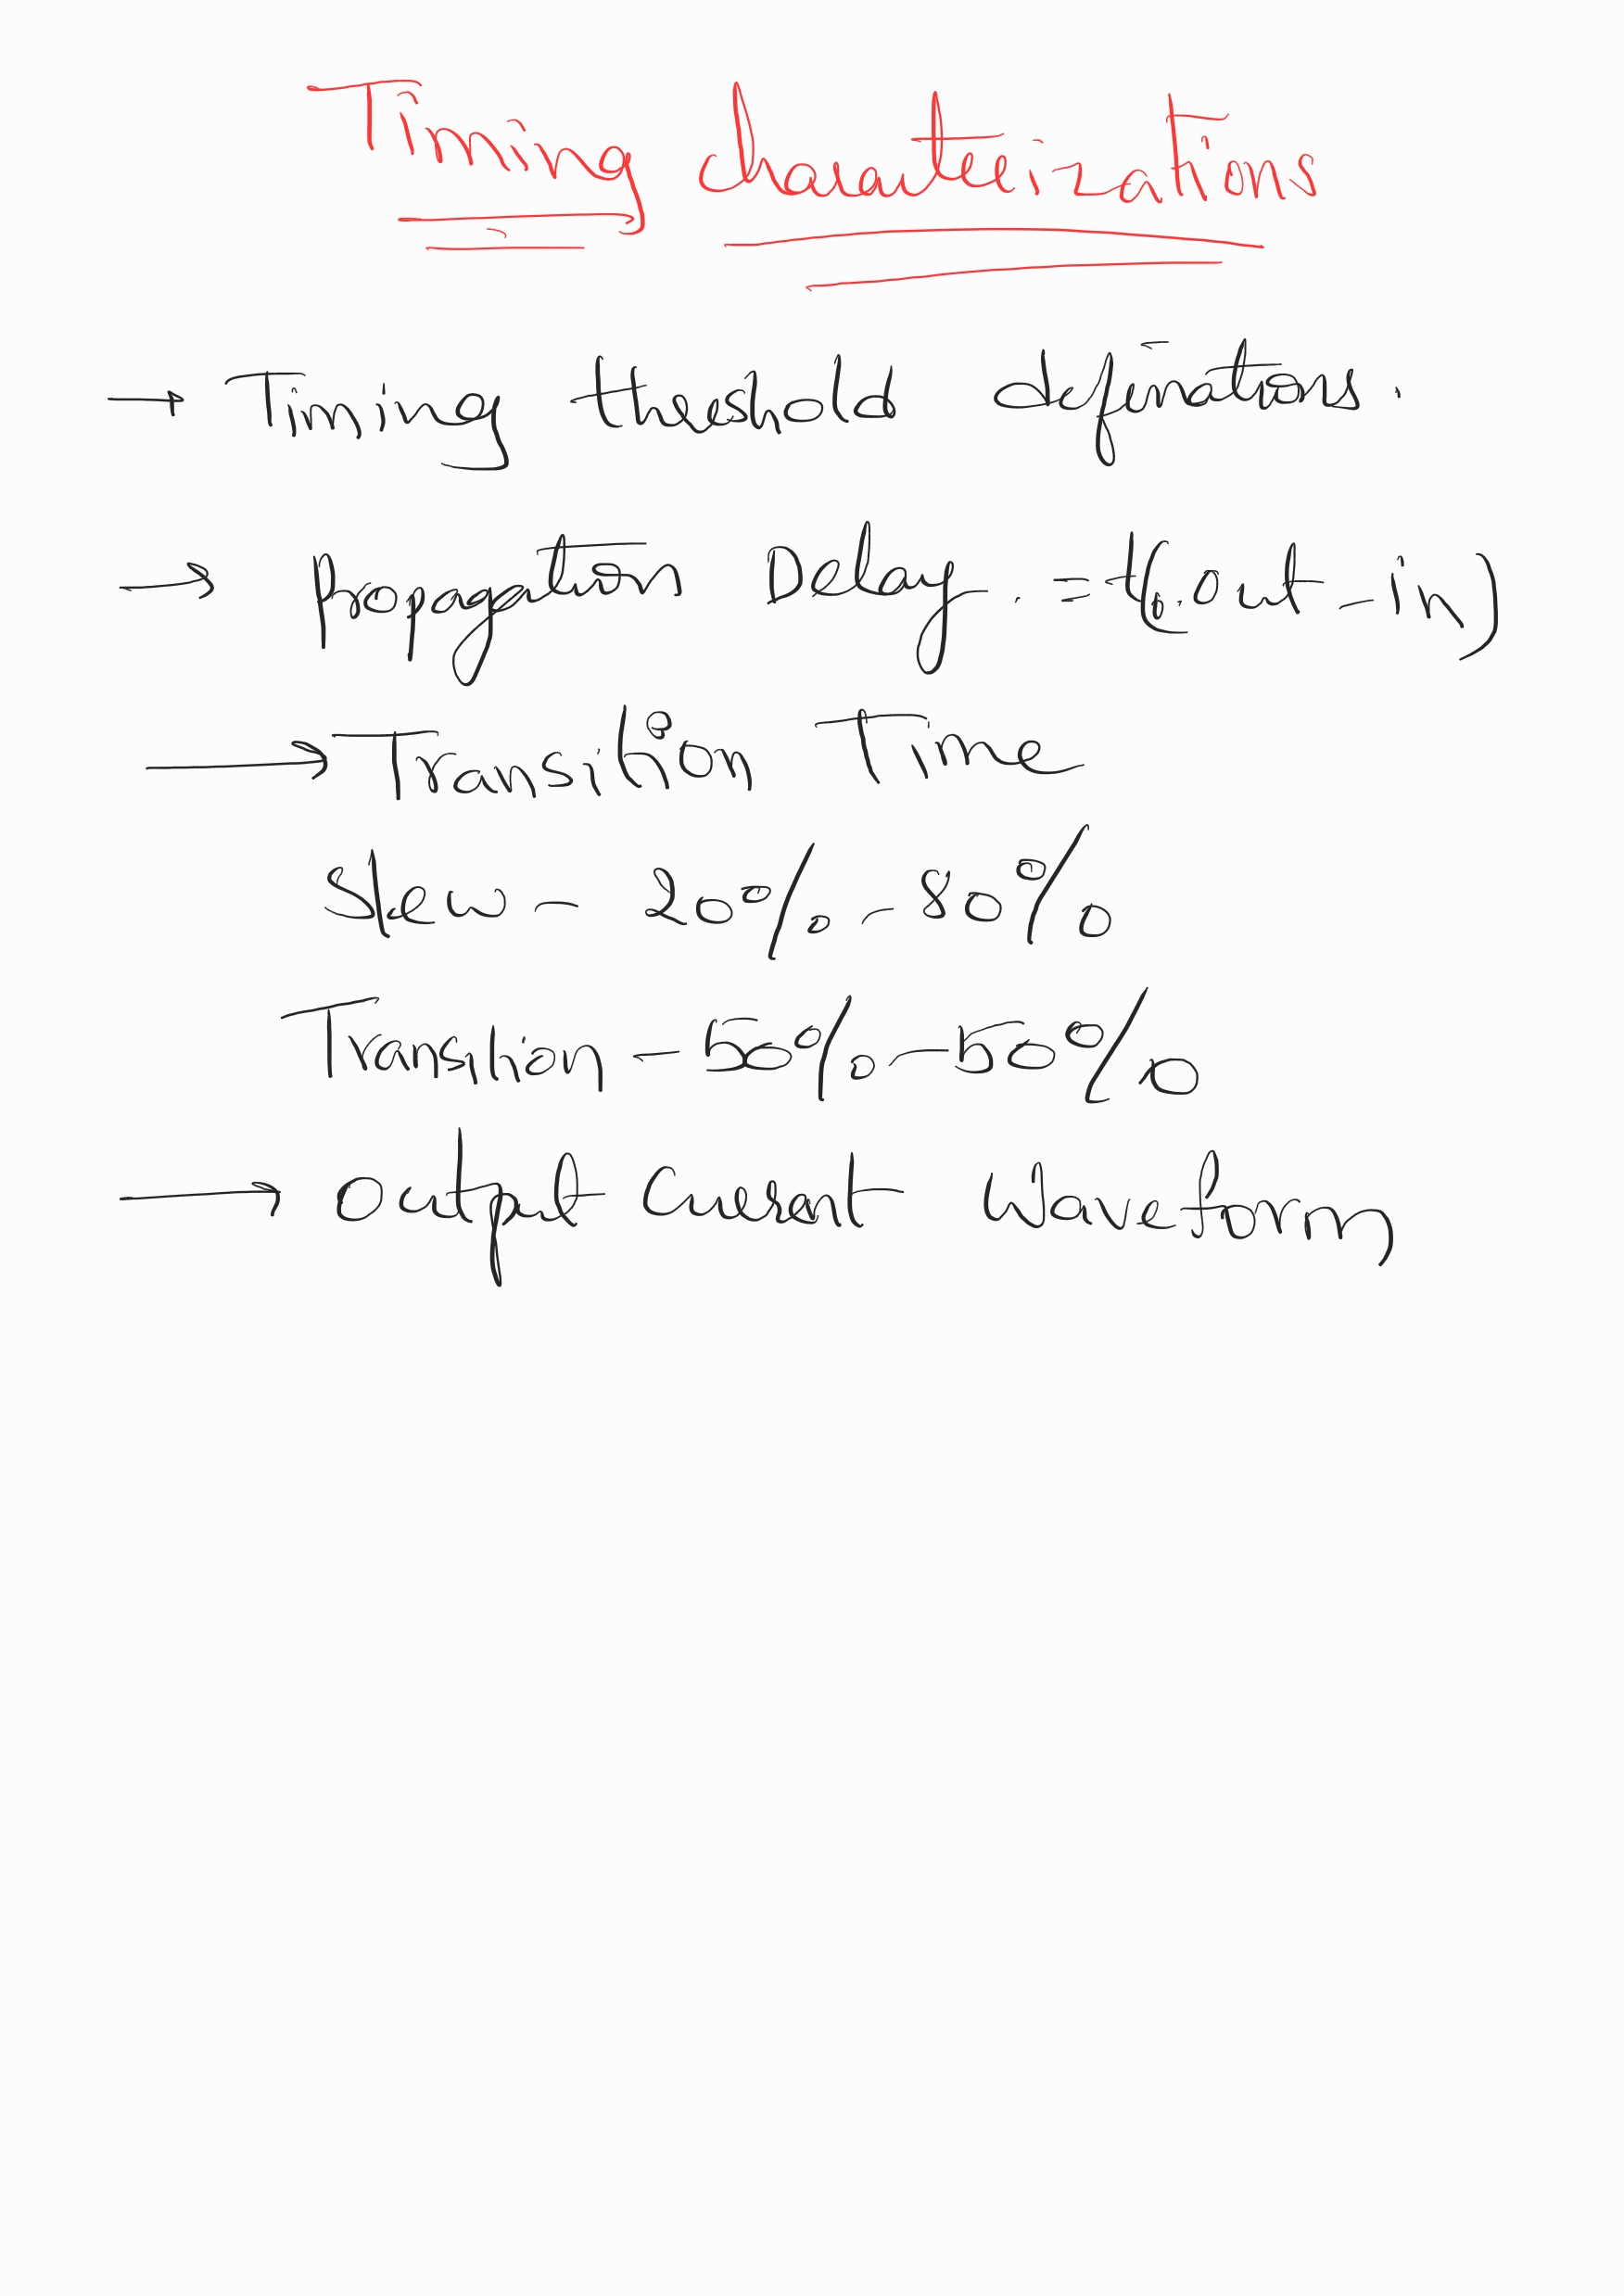 Timing charaterizations
→ Timing theshold definations.
→ Propagation Delay. = t(out - in)
→ Transition Time
Slew - 20% - 80%
Transition - 50% - 50%
→ Output Current Waveform